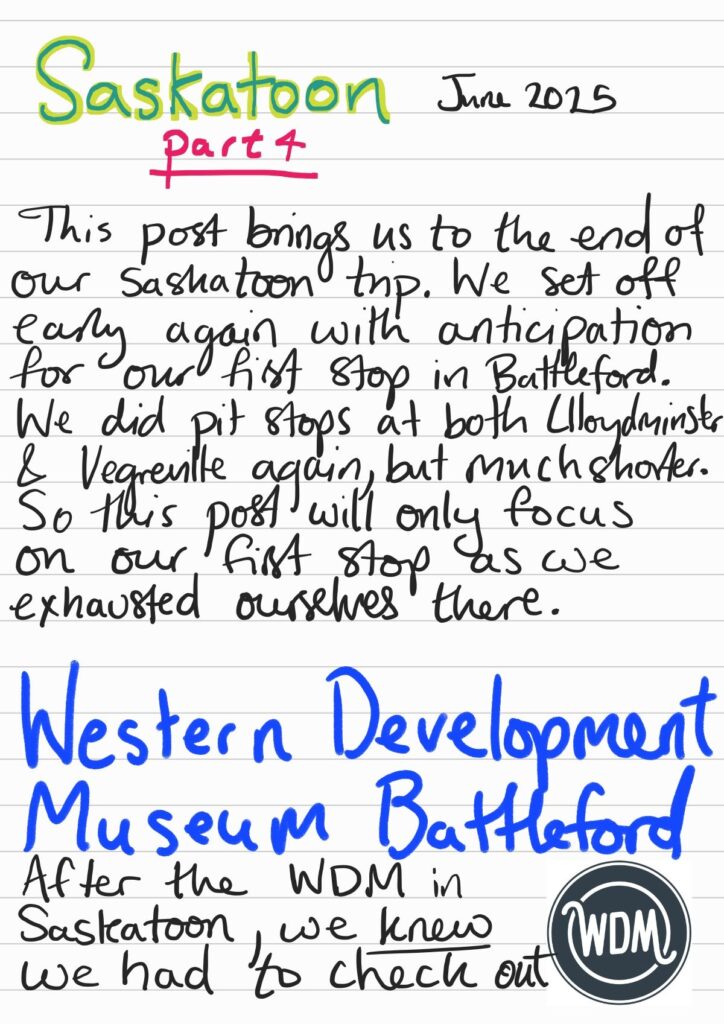 Saskatoon June 2025
part 4
This post brings us to the end of
our Saskatoon trip. We set off
early again with anticipation
for our first stop in Battleford.
We did pit stops at both Lloydminster
& Vegreville again, but much shorter.
So this post will only focus
on our first stop as we
exhausted ourselves there.
Western Development
Museum Battleford
After the WDM in
Saskatoon, we knew
we had to check out
WDM